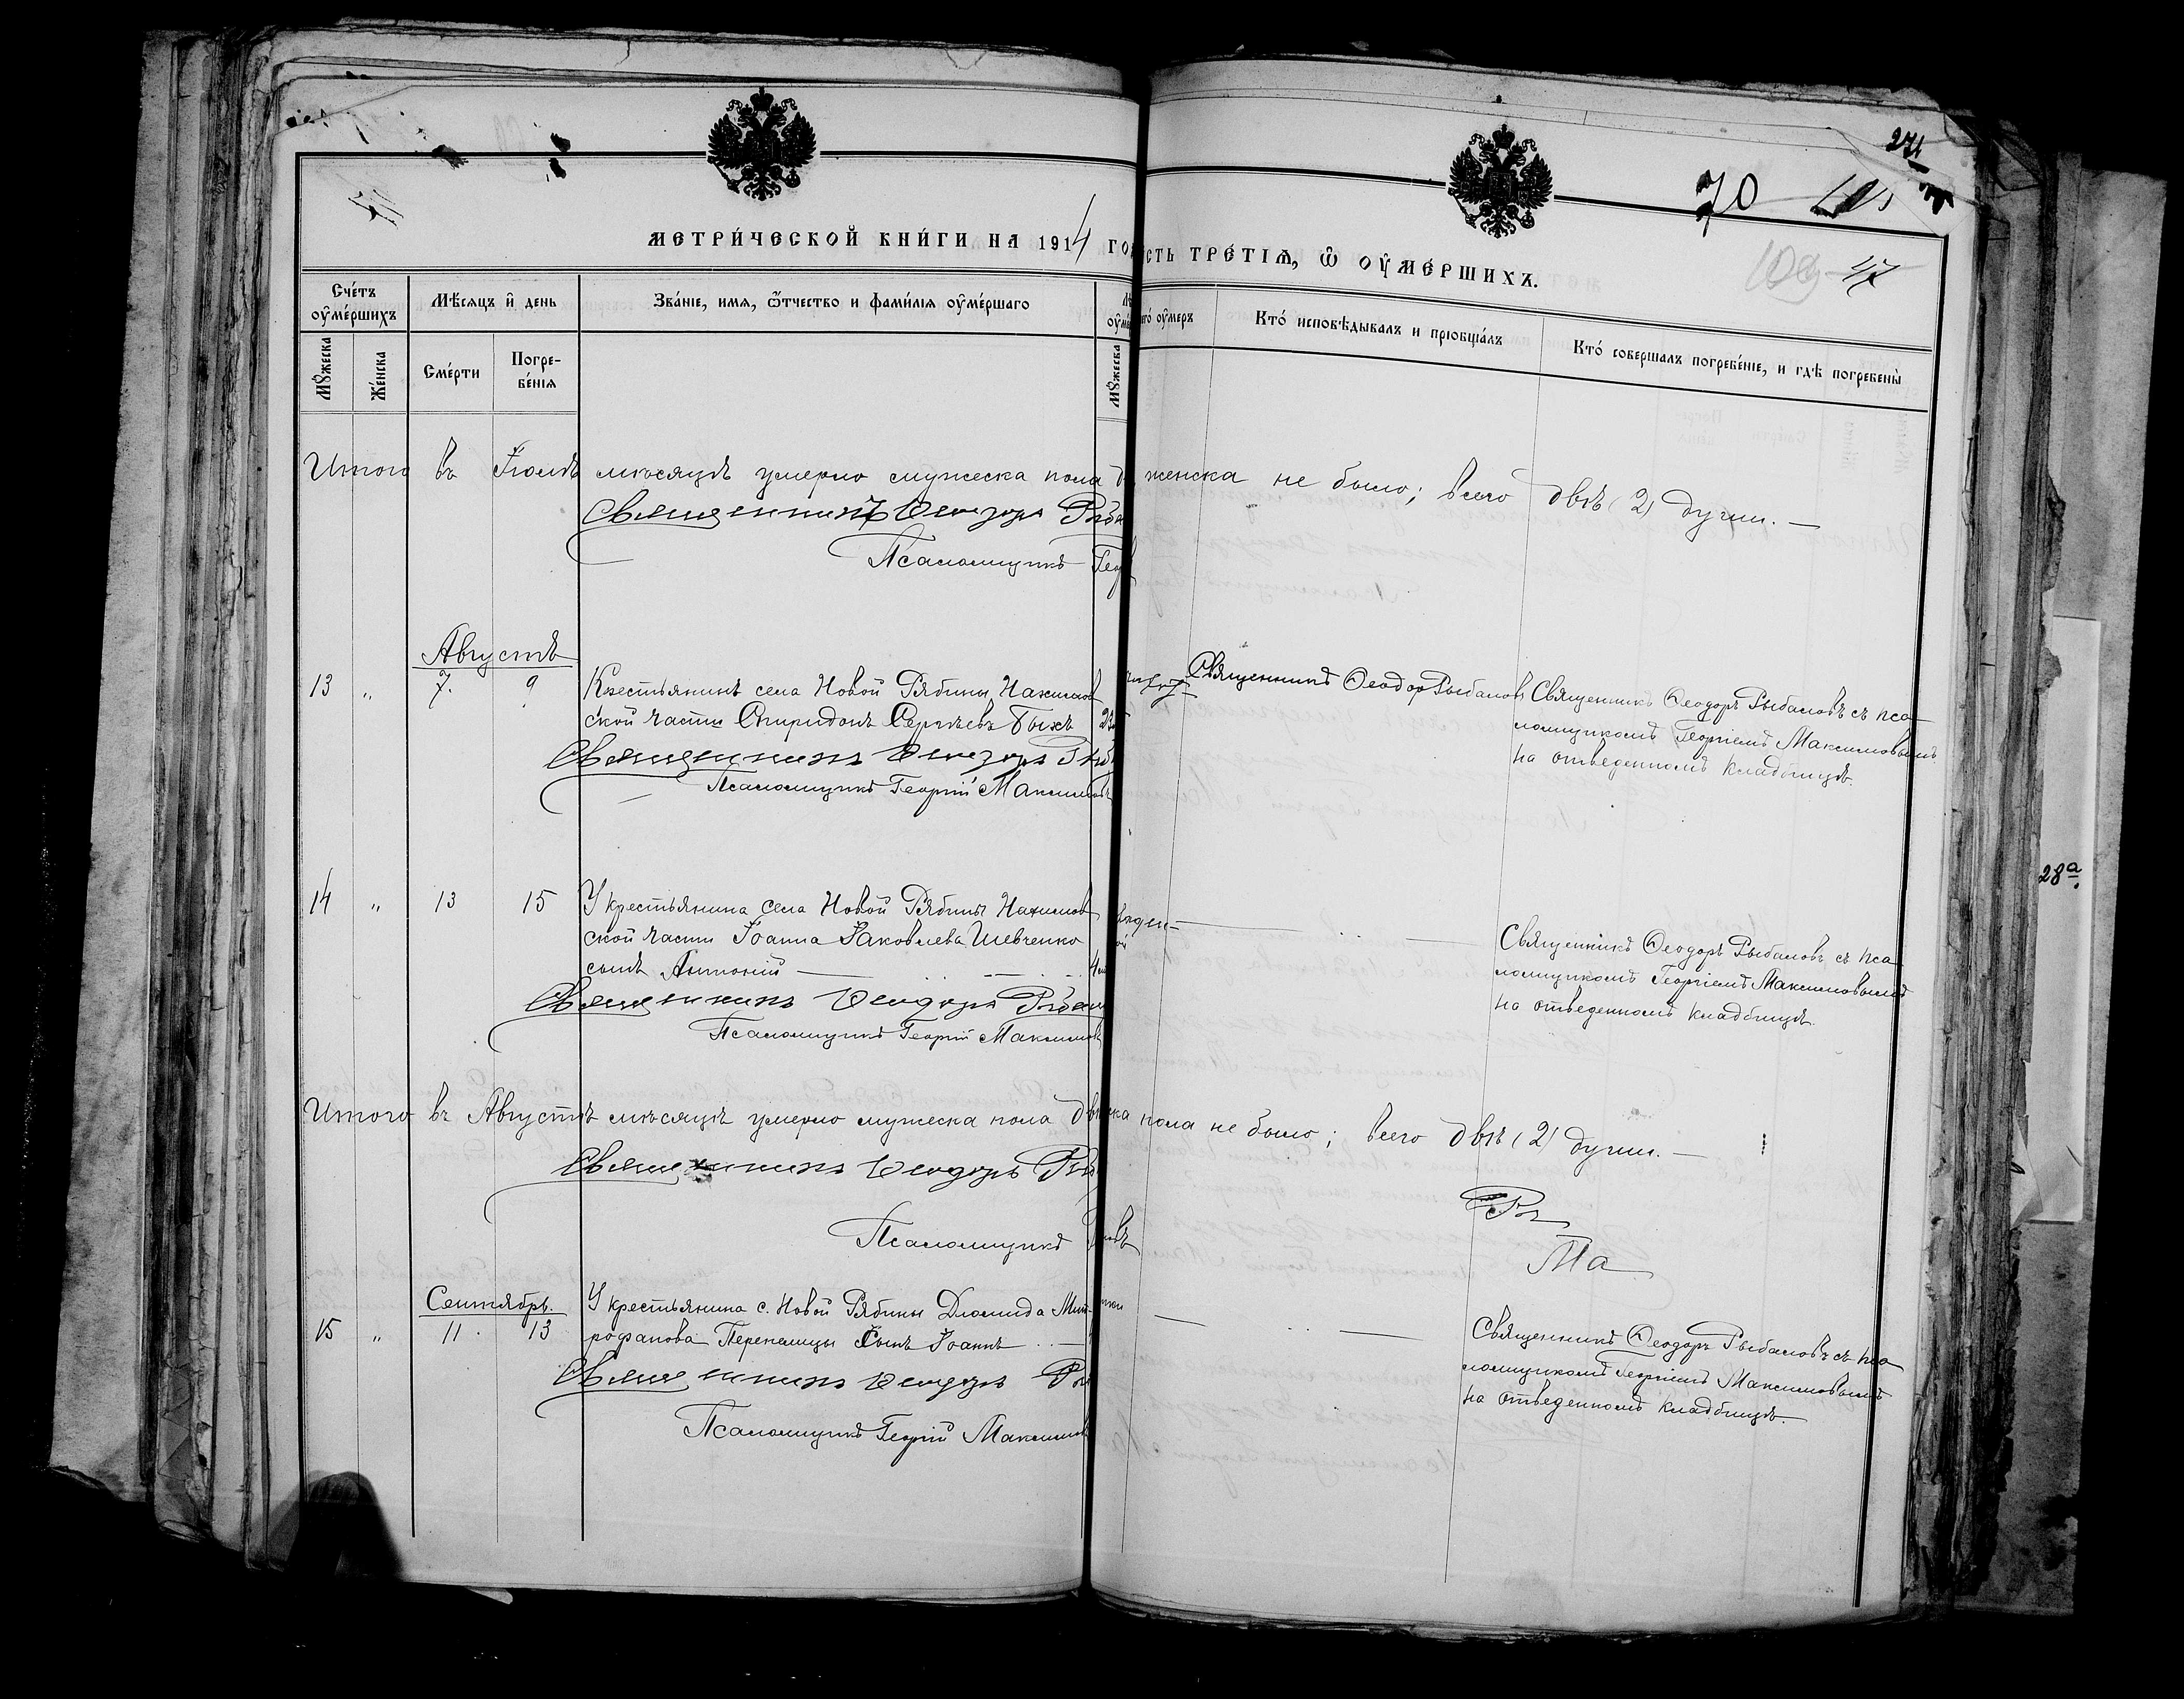 271
70
109 47
МЕТРИ́ЧЕСКОЙ КНИ́ГИ НА 1914
СТЬ ТРЕ́ТІѦ, Ѡ ОУ҆МЕ́РШИХЪ.
Сче́тъ оу҆ме́ршихъ
Мѣ́сяцъ и҆ день
Зва́ніе, имя, ѻ҆́тчество и фами́лія оу҆ме́ршаго
его́ оу҆меръ
Кто́ исповѣ́дывалъ и прїобща́лъ
Кто́ совершалъ погребе́ніе, и гдѣ̀ погребены̀
Мꙋ́жеска
Же́нска
Сме́рти
Погре-
бе́нія
Мꙋ́жеска
Итого въ Іюлѣ мѣсяцѣ умерло мужеска пола
женска не было; всего двѣ (2) души. —
Священникъ Ѳеодоръ
Псаломщикъ
Августъ
13 " 7. 9 Крестьянинъ села Новой Рябины, Нахимов
ской части Спиридонъ Сергѣевъ Быкъ
Священникъ Ѳеодоръ
Псаломщикъ Георгій Максимовъ
Священникъ Ѳеодоръ Рыбаловъ
Священникъ Ѳеодоръ Рыбаловъ съ пса
ломщикомъ Георгіемъ Максимовымъ
на отведенномъ кладбищѣ.
14 " 13 15 У крестьянина села Новой Рябины Нахимов
ской части Іоанна Яковлева Шевченко
сынъ Антоній —
Священникъ Ѳеодоръ
Псаломщикъ Георгій Максимовъ
Священникъ Ѳеодоръ Рыбаловъ съ пса
ломщикомъ Георгіемъ Максимовымъ
на отведенномъ кладбищѣ.
Итого въ Августѣ мѣсяцѣ умерло мужеска пола
пола не было; всего двѣ (2) души. —
Священникъ Ѳеодоръ
Псаломщикъ
Ма
Сентябрь.
15 " 11. 13 У крестьянина с. Новой Рябины Діомида Мит-
рофанова Перепелицы сынъ Іоаннъ
Священникъ Ѳеодоръ
Псаломщикъ Георгій Максимовъ
Священникъ Ѳеодоръ Рыбаловъ съ пса
ломщикомъ Георгіемъ Максимовымъ
на отведенномъ кладбищѣ.
28а.